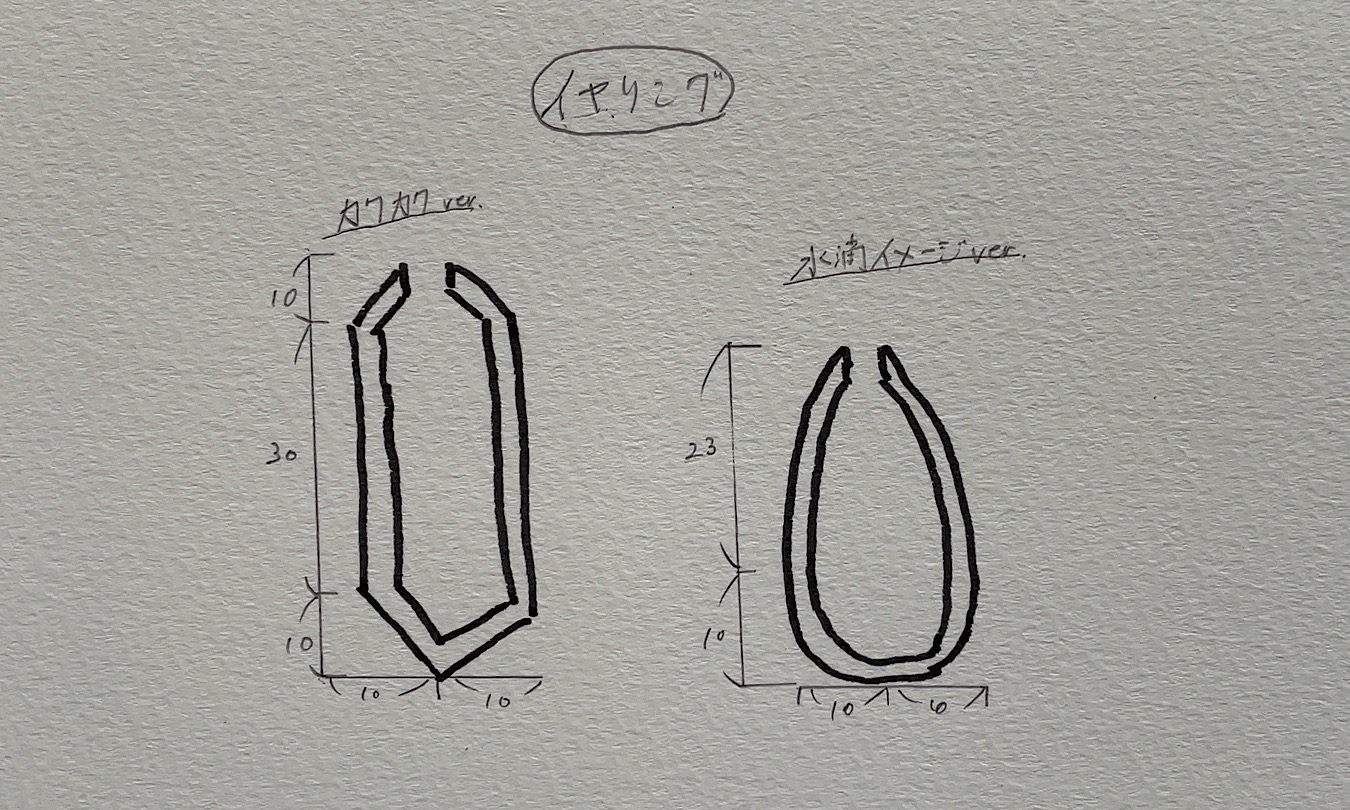 イヤリング
カクカク ver.
10
30
10
10 10
水滴イメージ ver.
23
10
10 6